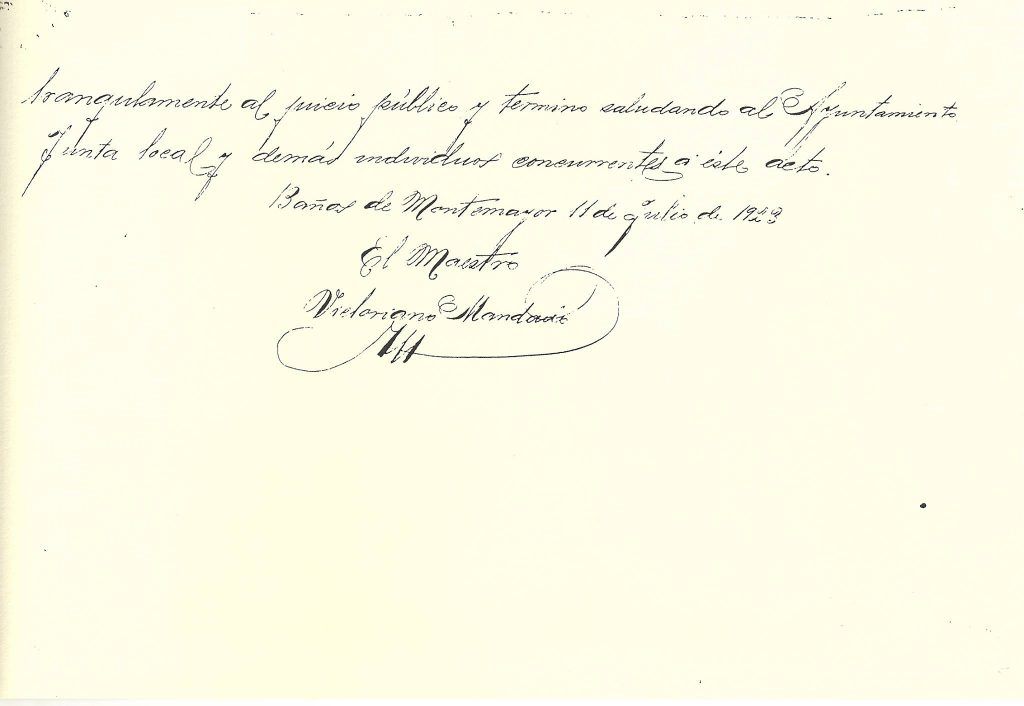 tranqulamente al juicio público y termino saludando al Ayuntamiento
Junta local y demás individuos concurrentes a éste acto.
Baños de Montemayor 11 de Julio de 1923
El Maestro
Victoriano